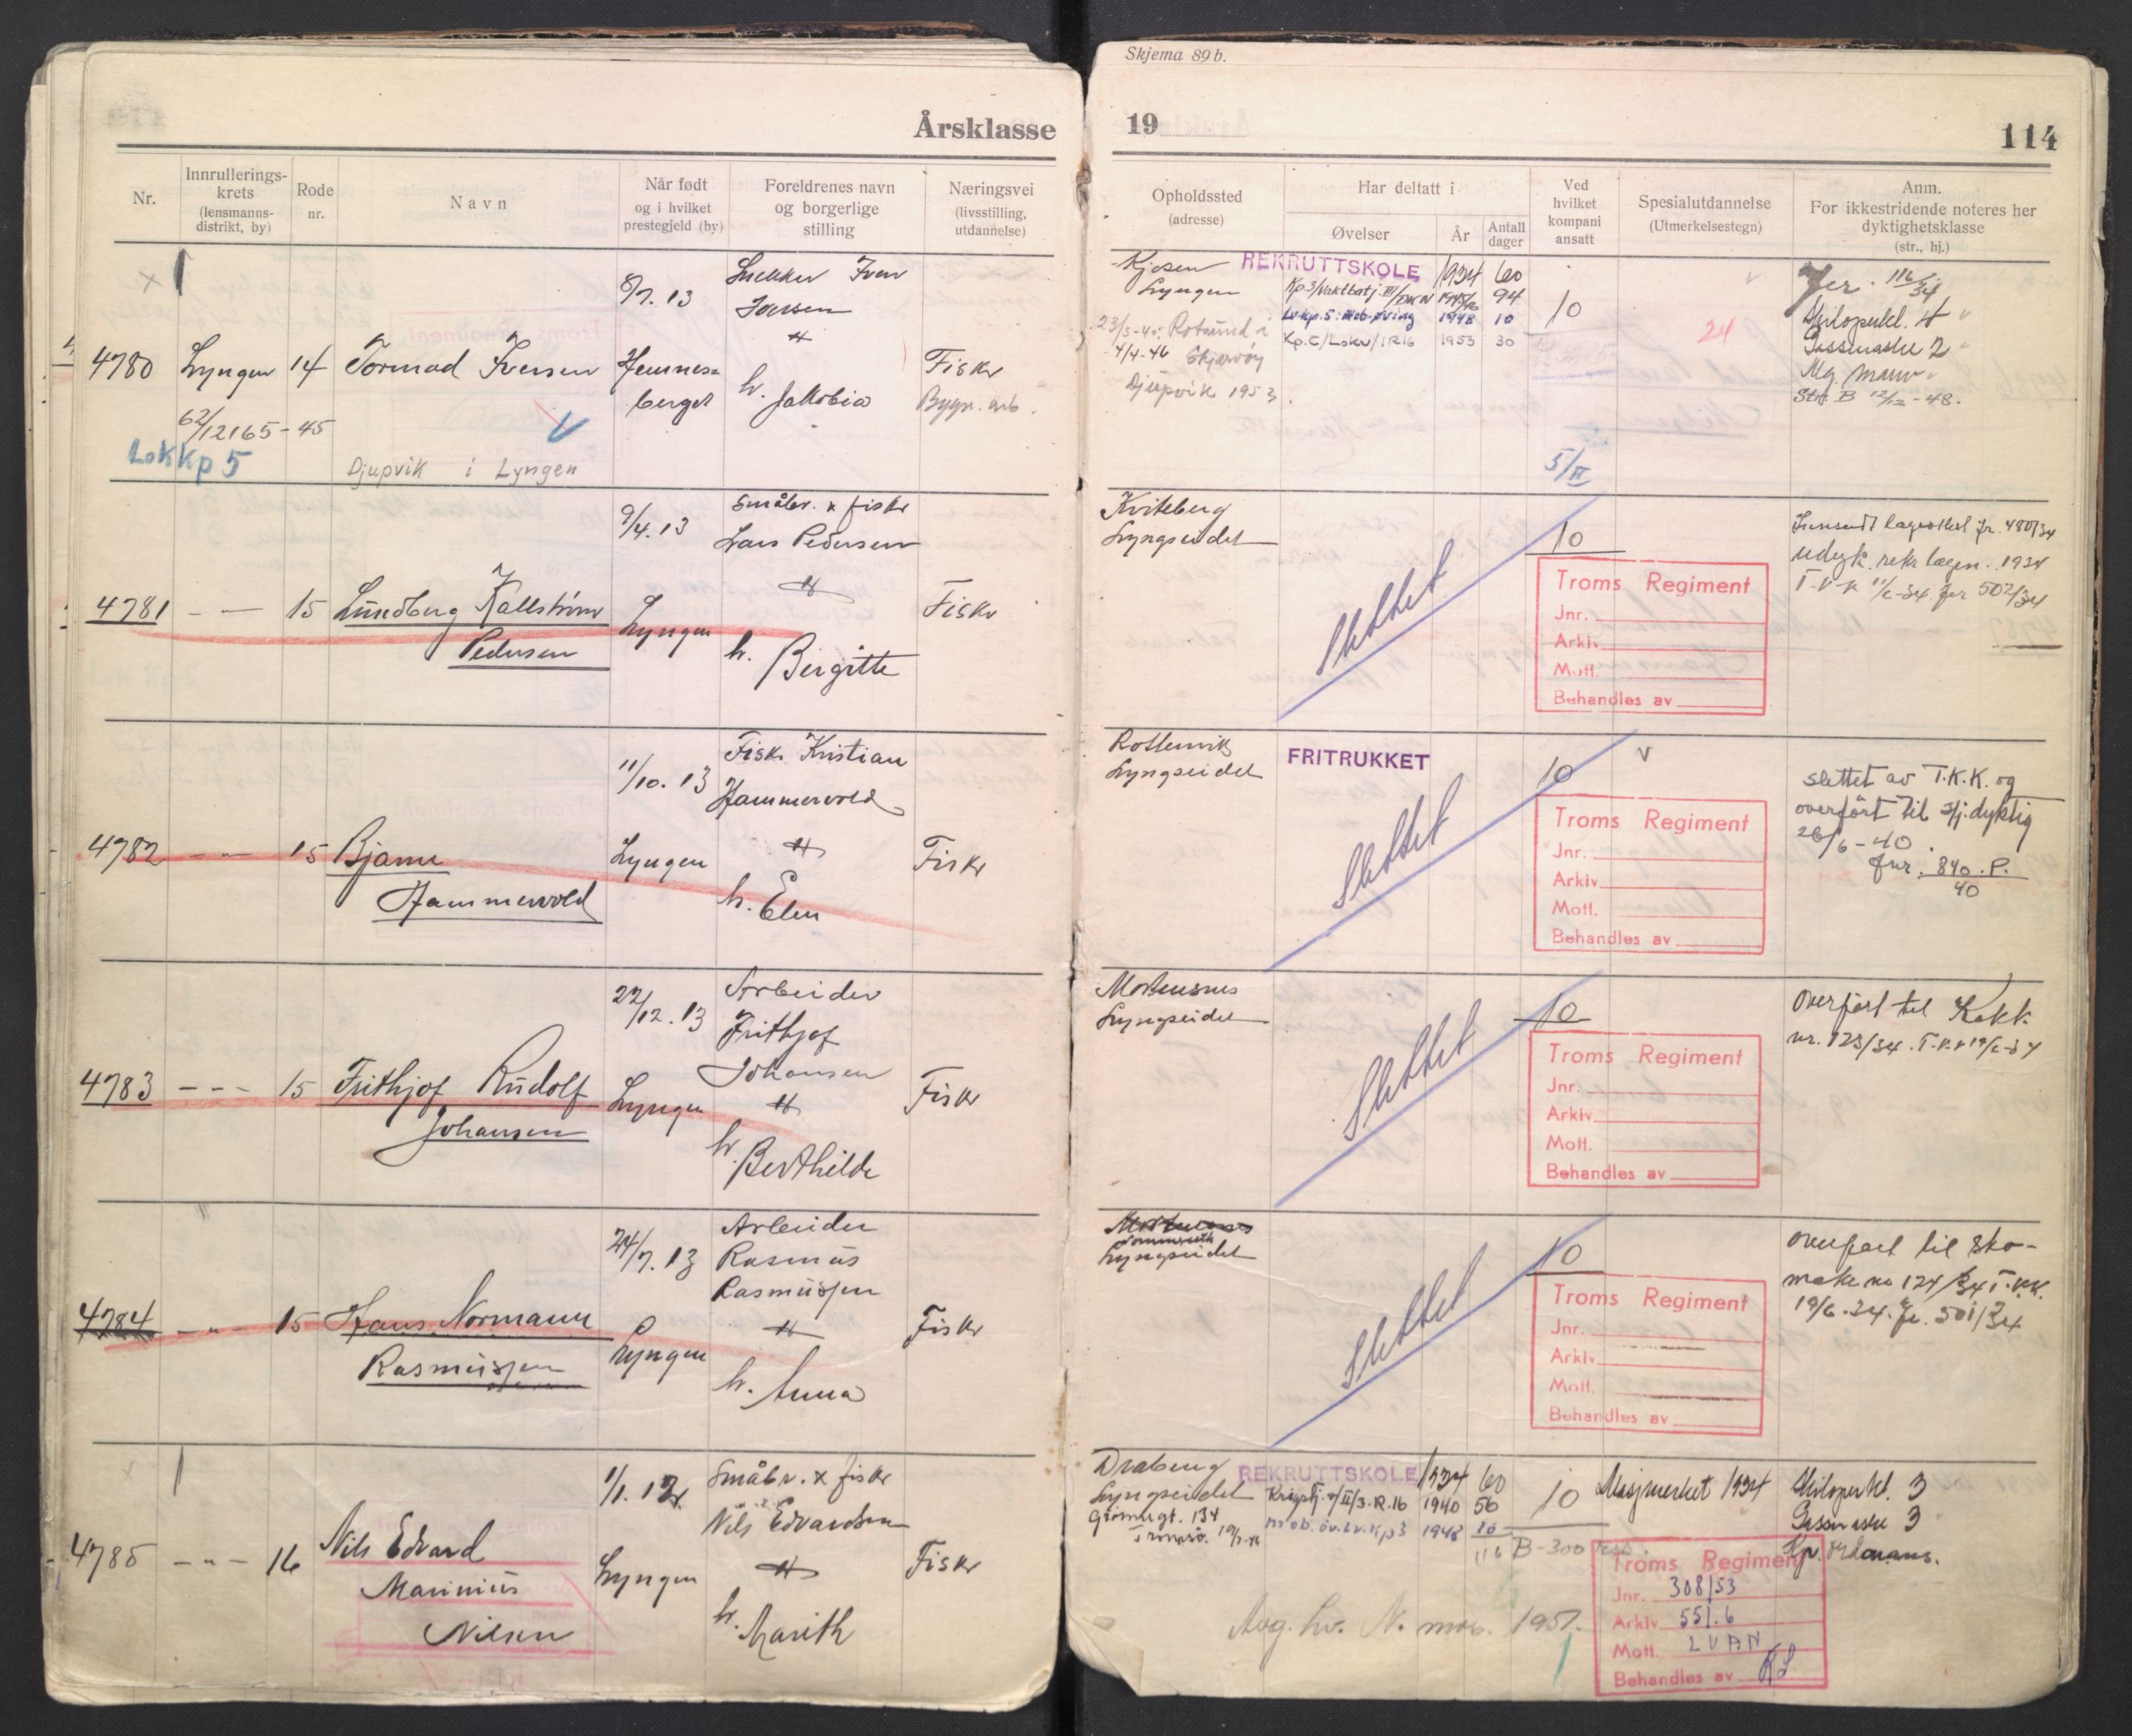 Skjema 89 b.
Årsklasse 19
114
Nr.
Innrullerings-
krets
(lensmanns-
distrikt, by)
Rode
nr.
Navn
Når født
og i hvilket
prestegjeld (by)
Foreldrenes navn
og borgerlige
stilling
Næringsvei
(livsstilling,
utdannelse)
Opholdssted
(adresse)
Har deltatt i
Øvelser
År
Antall
dager
Ved
hvilket
kompani
ansatt
Spesialutdannelse
(Utmerkelsestegn)
Anm.
For ikkestridende noteres her
dyktighetsklasse
(str., hj.)
4780 Lyngen 14 Tormod Iversen
62/12165-45
Lok kp 5
Djupvik i Lyngen
8/7. 13
Hemnes=
berget
Snekker Iver
Iversen
h. Jakobia
Fisker
Bygn. arb.
Kjosen
Lyngen
Rotsund i
4/4-46 Skjervøy
Djupvik 1953.
REKRUTTSKOLE 1934 60
Kp.3/Vaktbatj. III/DKN 1945/46 94
Lv.kp.5: mob.øving 1948 10
Kp.C/Lokv/IR16 1953 30
10
5/II
24
116/34
Gassmaske 2
Mg. mann
Str. B 12/12-48.
4781 - — 15 Lundberg Kallstrøm
Pedersen
9/4. 13
Lyngen
Småbr. x fisker
Lars Pedersen
h. Birgitte
Fisker
Kviteberg
Lyngseidet
Slettet
10
Troms Regiment
Jnr.
Arkiv.
Mott.
Behandles av
Innsendt legeattest jr. 480/34
Udyk. rekr. legen. 1934
4782 - " - 15 Bjarne
Hammervold
11/10. 13
Lyngen
Fisk. Kristian
Hammervold
h. Elen
Fisker
Rottenvik
Lyngseidet
FRITRUKKET
Slettet
10
V
Troms Regiment
Jnr.
Arkiv.
Mott.
Behandles av
slettet av T.K.K. og
overført til hj.dyktig
26/6-40.
Jnr. 840.P.
40
4783 - - - 15 Frithjof Rudolf
Johansen
22/12. 13
Lyngen
Arbeider
Frithjof
Johansen
h. Berthilde
Fisker
Mortensnes
Lyngseidet
Slettet
10
Troms Regiment
Jnr.
Arkiv.
Mott.
Behandles av
Overført til Kokk
nr. 123/34. T.K.K 19/6-34
4784 - " - 15 Hans Normann
Rasmussen
24/7. 13
Lyngen
Arbeider
Rasmus
Rasmussen
h. Anna
Fisker
Mortensnes
Lyngseidet
Slettet
10
Troms Regiment
Jnr.
Arkiv.
Mott.
Behandles av
overført til sko-
maker nr 124/34 T.K.K.
19/6-34. Jr. 501/34
4785 - " - 16 Nils Edvard
Marinius
Nilsen
1/1. 12
Lyngen
Småbr. x fisker
Nils Edvardsen
h. Marith
Fisker
Draberg
Lyngseidet
Grønnegt. 134
Tromsø.
REKRUTTSKOLE 1934 60
1940 56
1948 10
116
10
B-300
Skimerket 1934
Gassmaske 3
Kp. ordonnans.
Avg. hv. N. mob. 1951.
Troms Regiment
Jnr. 308/53
Arkiv 551.6
Mott. LVAN
Behandles av KL